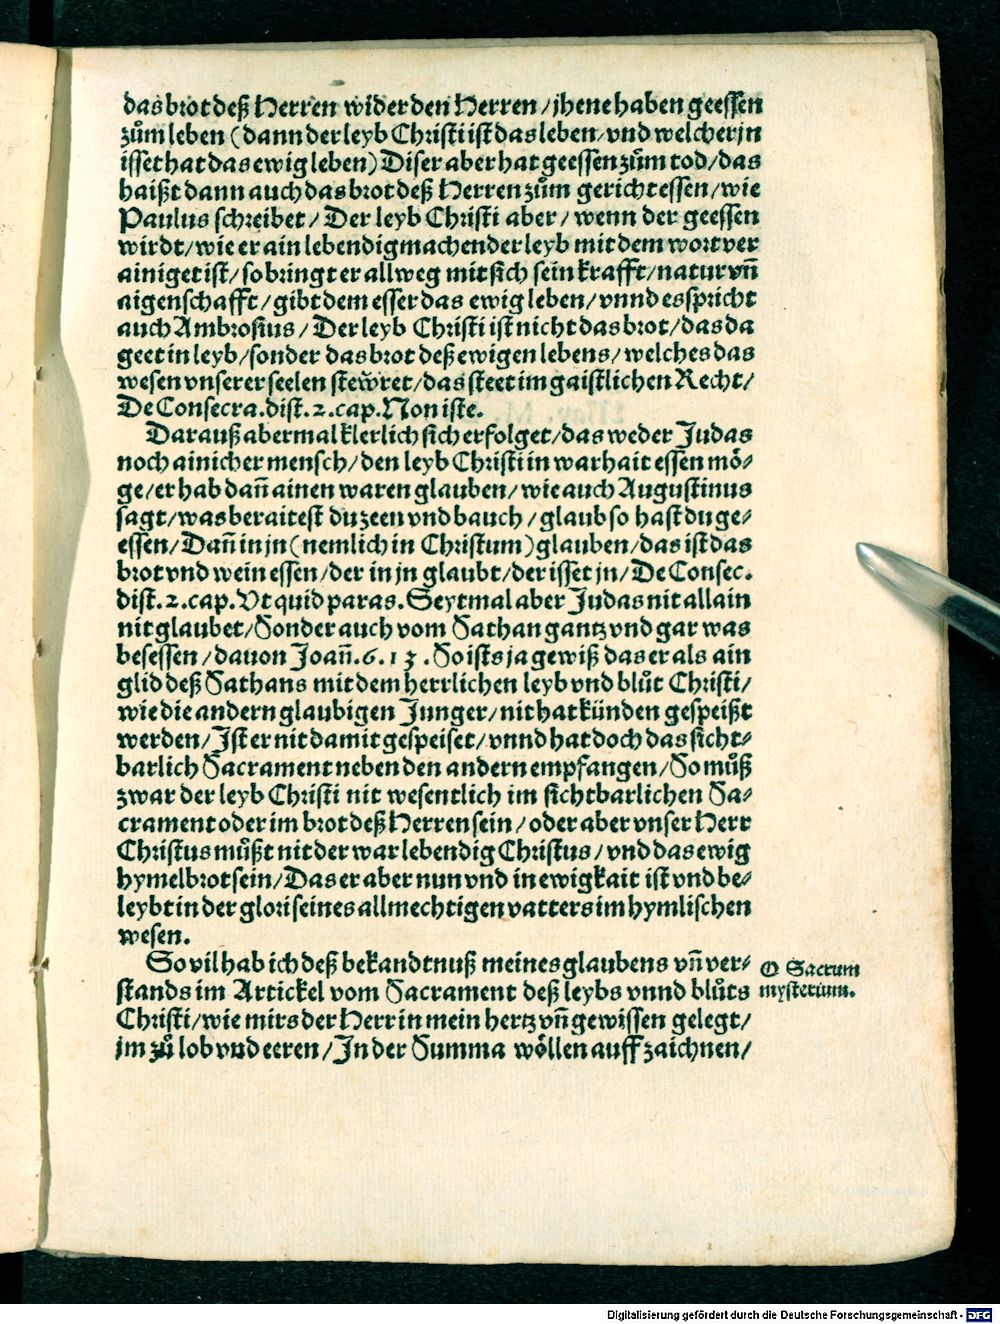 das brot deß Herren wider den Herren / jhene haben geessen
zům leben (dann der leyb Christi ist das leben / vnd welcher jn
isset hat das ewig leben) Diser aber hat geessen zům tod / das
haißt dann auch das brot deß Herren zům gericht essen / wie
Paulus schreibet / Der leyb Christi aber / wenn der geessen
wirdt / wie er ain lebendigmachender leyb mit dem wort ver
ainiget ist / so bringt er allweg mit sich sein krafft / natur vñ
aigenschafft / gibt dem esser das ewig leben / vnnd es spricht
auch Ambrosius / Der leyb Christi ist nicht das brot / das da
geet in leyb / sonder das brot deß ewigen lebens / welches das
wesen vnserer seelen stewret / das steet im gaistlichen Recht /
De Consecra. dist. 2. cap. Non iste.
Darauß abermal klerlich sich erfolget / das weder Judas
noch ainicher mensch / den leyb Christi in warhait essen mö⸗
ge / er hab dañ ainen waren glauben / wie auch Augustinus
sagt / was beraitest du zeen vnd bauch / glaub so hast du ge⸗
essen / Dañ in jn (nemlich in Christum) glauben / das ist das
brot vnd wein essen / der in jn glaubt / der isset jn / De Consec.
dist. 2. cap. Vt quid paras. Seytmal aber Judas nit allain
nit glaubet / Sonder auch vom Sathan gantz vnd gar was
besessen / dauon Joañ. 6. 13. So ists ja gewiß das er als ain
glid deß Sathans mit dem herrlichen leyb vnd blůt Christi /
wie die andern glaubigen Junger / nit hat künden gespeißt
werden / Ist er nit damit gespeiset / vnnd hat doch das sicht⸗
barlich Sacrament neben den andern empfangen / So můß
zwar der leyb Christi nit wesentlich im sichtbarlichen Sa⸗
crament oder im brot deß Herren sein / oder aber vnser Herr
Christus můßt nit der war lebendig Christus / vnd das ewig
hymelbrot sein / Das er aber nun vnd in ewigkait ist vnd be⸗
leybt in der glori seines allmechtigen vatters im hymlischen
wesen.
So vil hab ich deß bekandtnuß meines glaubens vñ ver⸗
stands im Artickel vom Sacrament deß leybs vnnd blůts
Christi / wie mirs der Herr in mein hertz vñ gewissen gelegt /
jm zů lob vnd eeren / In der Summa wöllen auffzaichnen /
O Sacrum
mysterium.
Digitalisierung gefördert durch die Deutsche Forschungsgemeinschaft - DFG